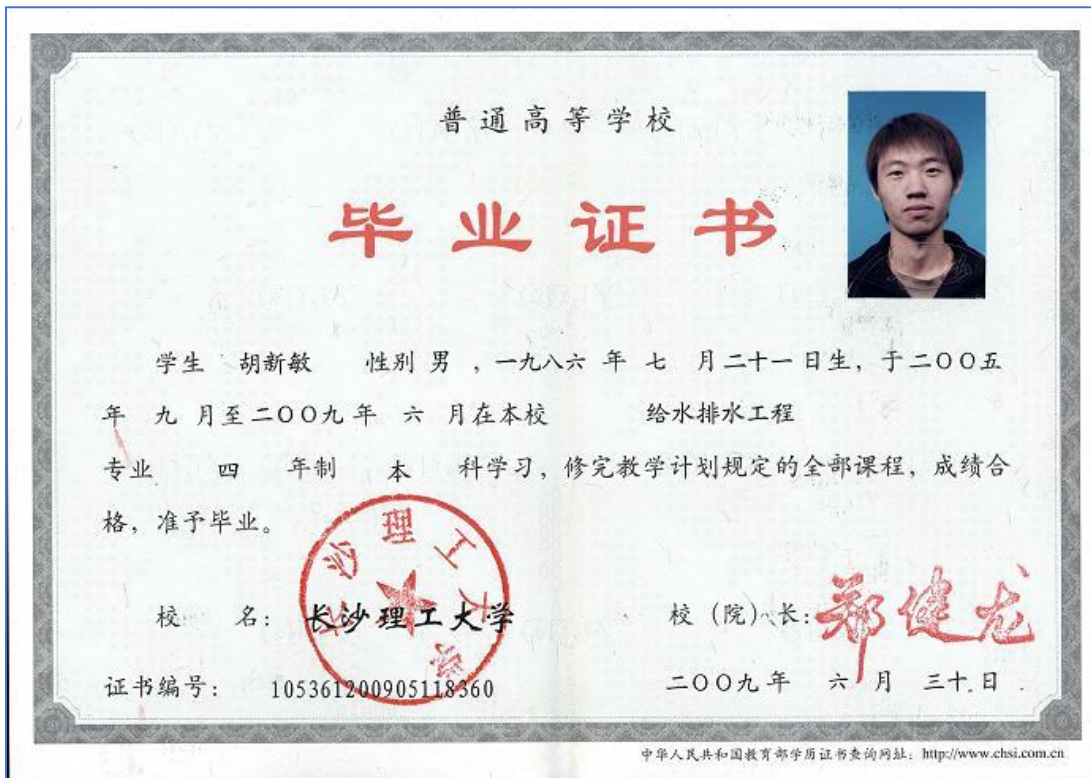 普通高等学校
毕业证书
学生 胡新敏 性别 男 ，一九八六 年 七 月二十一日生，于二〇〇五
年 九 月至二〇〇九年 六 月在本校 给水排水工程
专业 四 年制 本 科学习，修完教学计划规定的全部课程，成绩合
格，准予毕业。
长沙理工大学
校 名： 长沙理工大学
校（院）长：郑健龙
证书编号： 105361200905118360
二〇〇九年 六 月 三十日
中华人民共和国教育部学历证书查询网址：http://www.chsi.com.cn